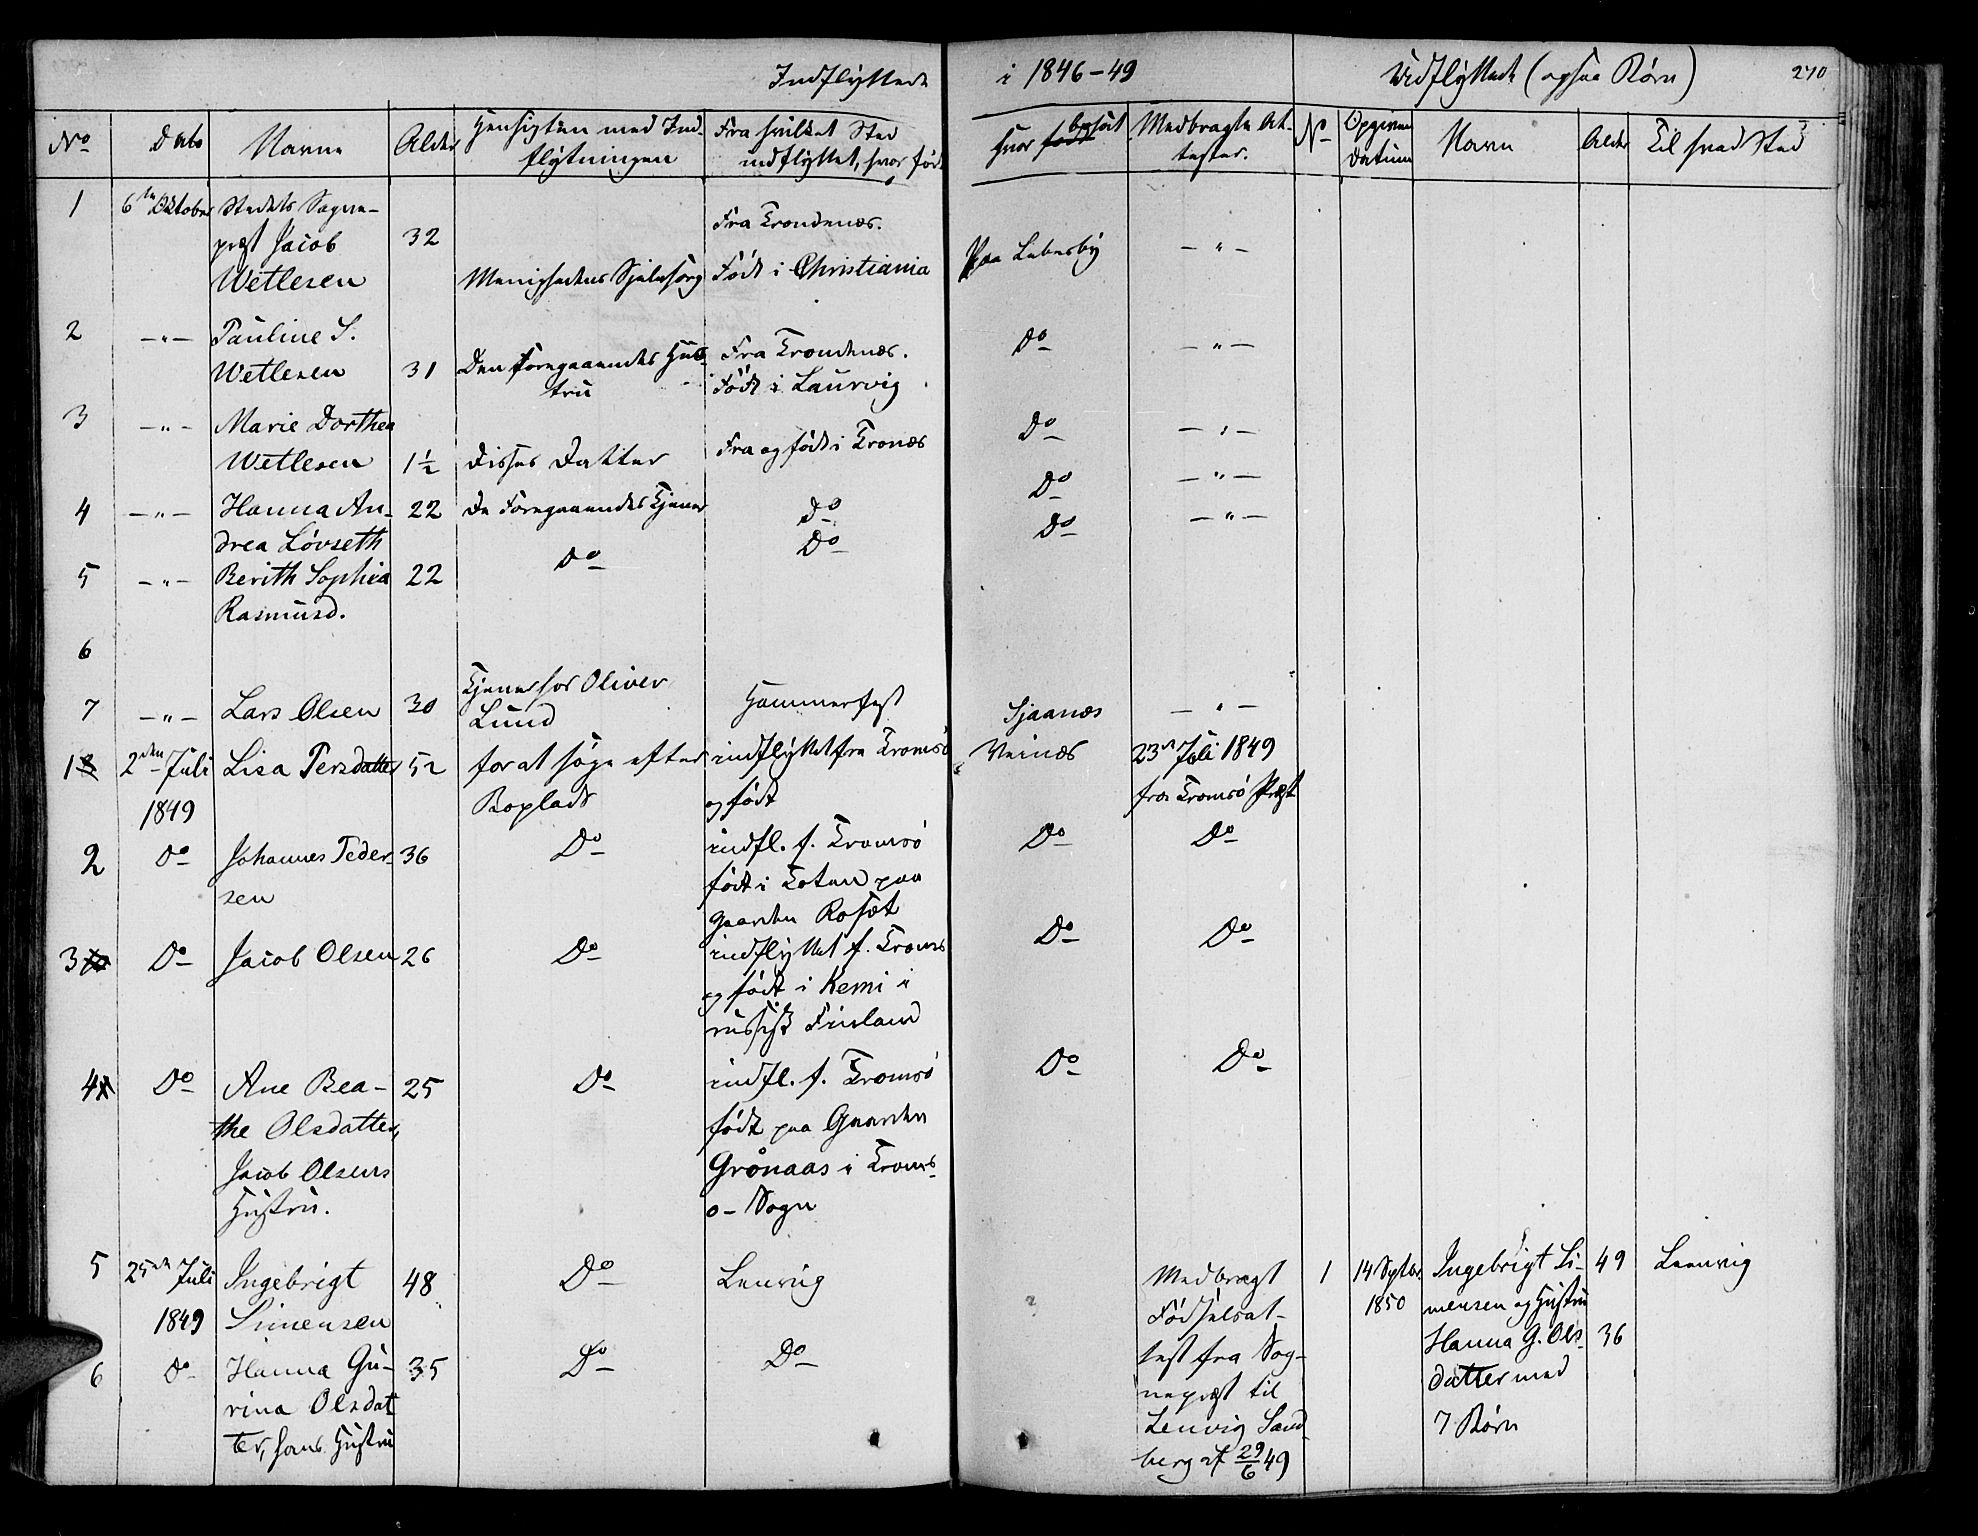 Indflyttede i 1846-49 Udflyttede (ogsaa Børn) 270
No Dato Navne Alder Hensigten med Ind-
flytningen Fra hvilket Sted
indflyttet, hvor født
hvor født bosat Medbragte At-
tester. No Opgiven
Datum Navn Alder Til hvad Sted
1 6te Oktober Stedets Sogne-
præst Jacob 32 Fra Trondenæs.
Wetlesen Menighedens Sjelesorg Født i Christiania Paa Lebesby - " -
2 - " - Pauline S.
Wetlesen 31 Den Foregaaendes Hus-
tru Fra Trondenæs.
Født i Laurvig Do - " -
3 - " - Marie Dorthea
Wetlesen 1½ Disses Datter Fra og født i Tronæs Do - " -
4 - " - Hanna An-
drea Lövseth 22 De Foregaaendes Tjener Do Do - " -
5 - " - Berith Sophia
Rasmusd. 22 Do Do Do - " -
6
7 - " - Lars Olsen 30 Tjener hos Oliver
Lund Hammerfest Sjaanæs - " -
1 2den Juli
1849 Lisa Persdatter 52 for at söge efter
Boplads indflyttet fra Tromsö
og født Veinæs 23de Juli 1849
fra Tromsö Præst
2 Do Johannes Peder-
sen 36 Do indfl. f. Tromsö
født i Toten paa
Gaarden Rosæt Do Do
3 Do Jacob Olsen 26 Do indflyttet f. Tromsö
og født i Kemi i
russisk Finland Do Do
4 Do Ane Bea-
the Olsdatter,
Jacob Olsens
Hustru. 25 Do indfl. f. Tromsö
født paa Gaarden
Grönaas i Troms-
ö-Sogn Do Do
5 25de Juli
1849 Ingebrigt
Simensen 48 Do Lenvig
6 Do Hanna Gu-
rina Olsdat-
ter, hans Hustru 35 Do Do
Medbragt
Födselsat-
test fra Sog-
nepræst til
Lenvig Sand-
berg af 29/6 49
1 14 Septbr.
1850 Ingebrigt Si-
mensen og Hustru
Hanna G. Ols-
datter med
7 Børn 49
36 Lenvig